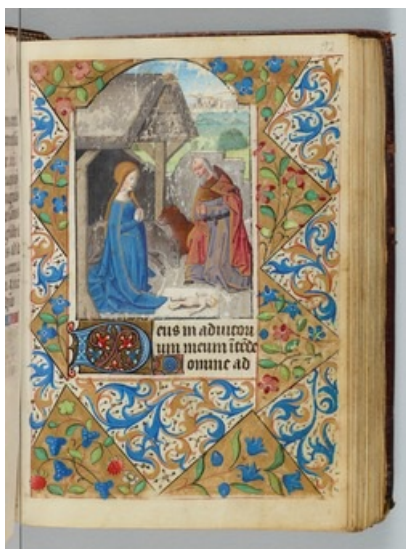 Deus in adiutori
um meum ītēde
Domine ad